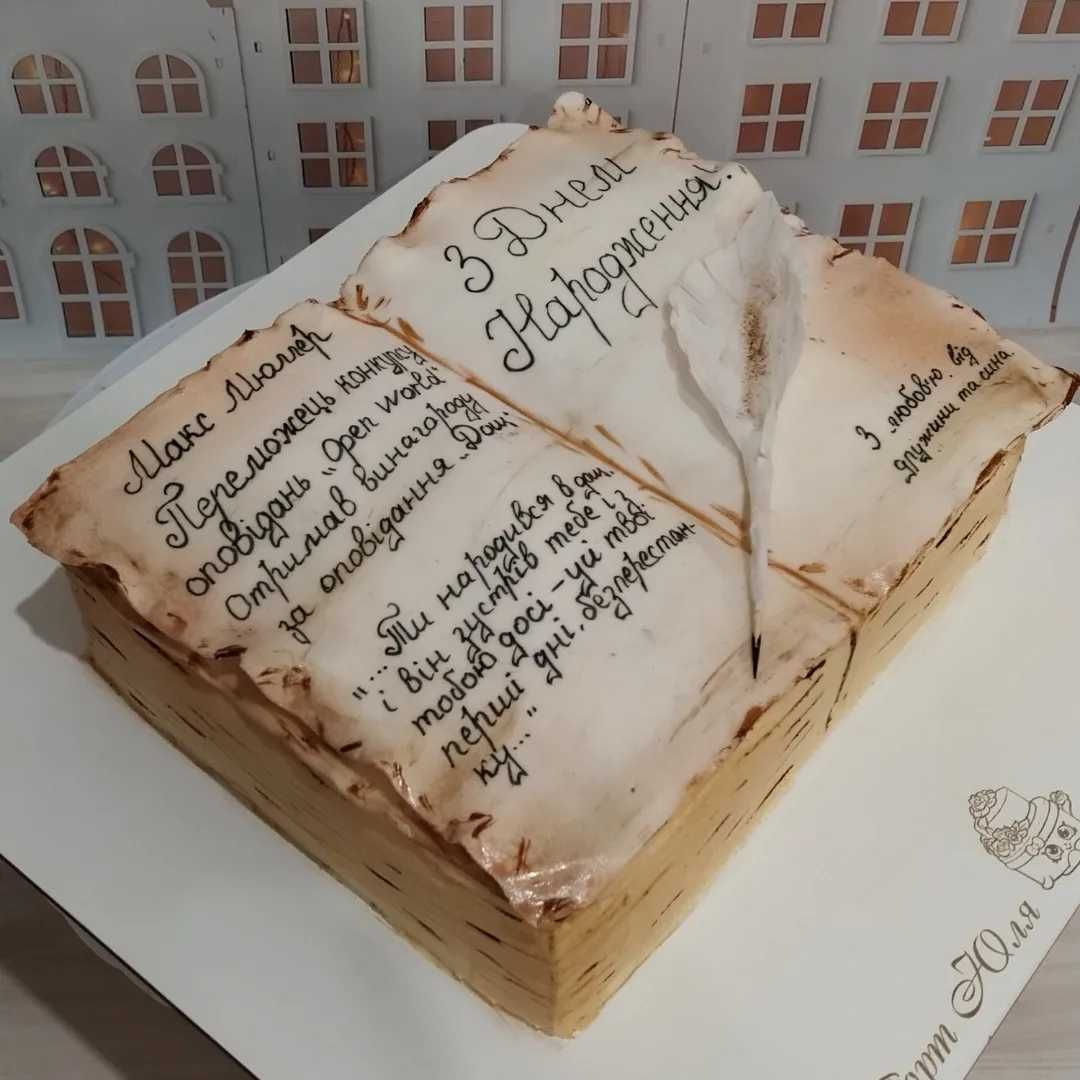 Макс Мюллер
Переможець конкурсу
оповідань „Open World"
Отримав винагороду
за оповідання „Дощ"
"...Ти народився в дощ.
і він зустрів тебе і з
тобою досі - уи твої
перші дні. безперестан-
ку..."
З Днем
Народження!
З любов'ю. від
дружини та сина.
Торт Юля